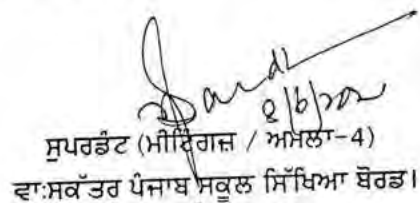 ਸੁਪਰਡੰਟ (ਮੀਟਿੰਗਜ਼ / ਅਮਲਾ-4)
ਵਾ:ਸਕੱਤਰ ਪੰਜਾਬ ਸਕੂਲ ਸਿੱਖਿਆ ਬੋਰਡ।